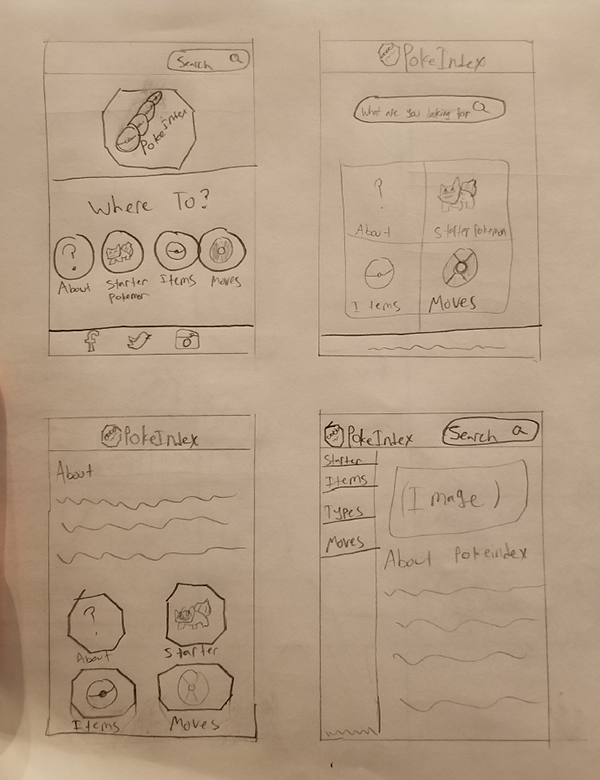 Search
PokeIndex
Where To?
About
Starter
Pokemon
Items
Moves
PokeIndex
What are you looking for
?
About
Starter Pokemon
Items
Moves
PokeIndex
About
?
About
Starter
Items
Moves
PokeIndex
Search
Starter
Items
Types
Moves
(Image)
About Pokeindex